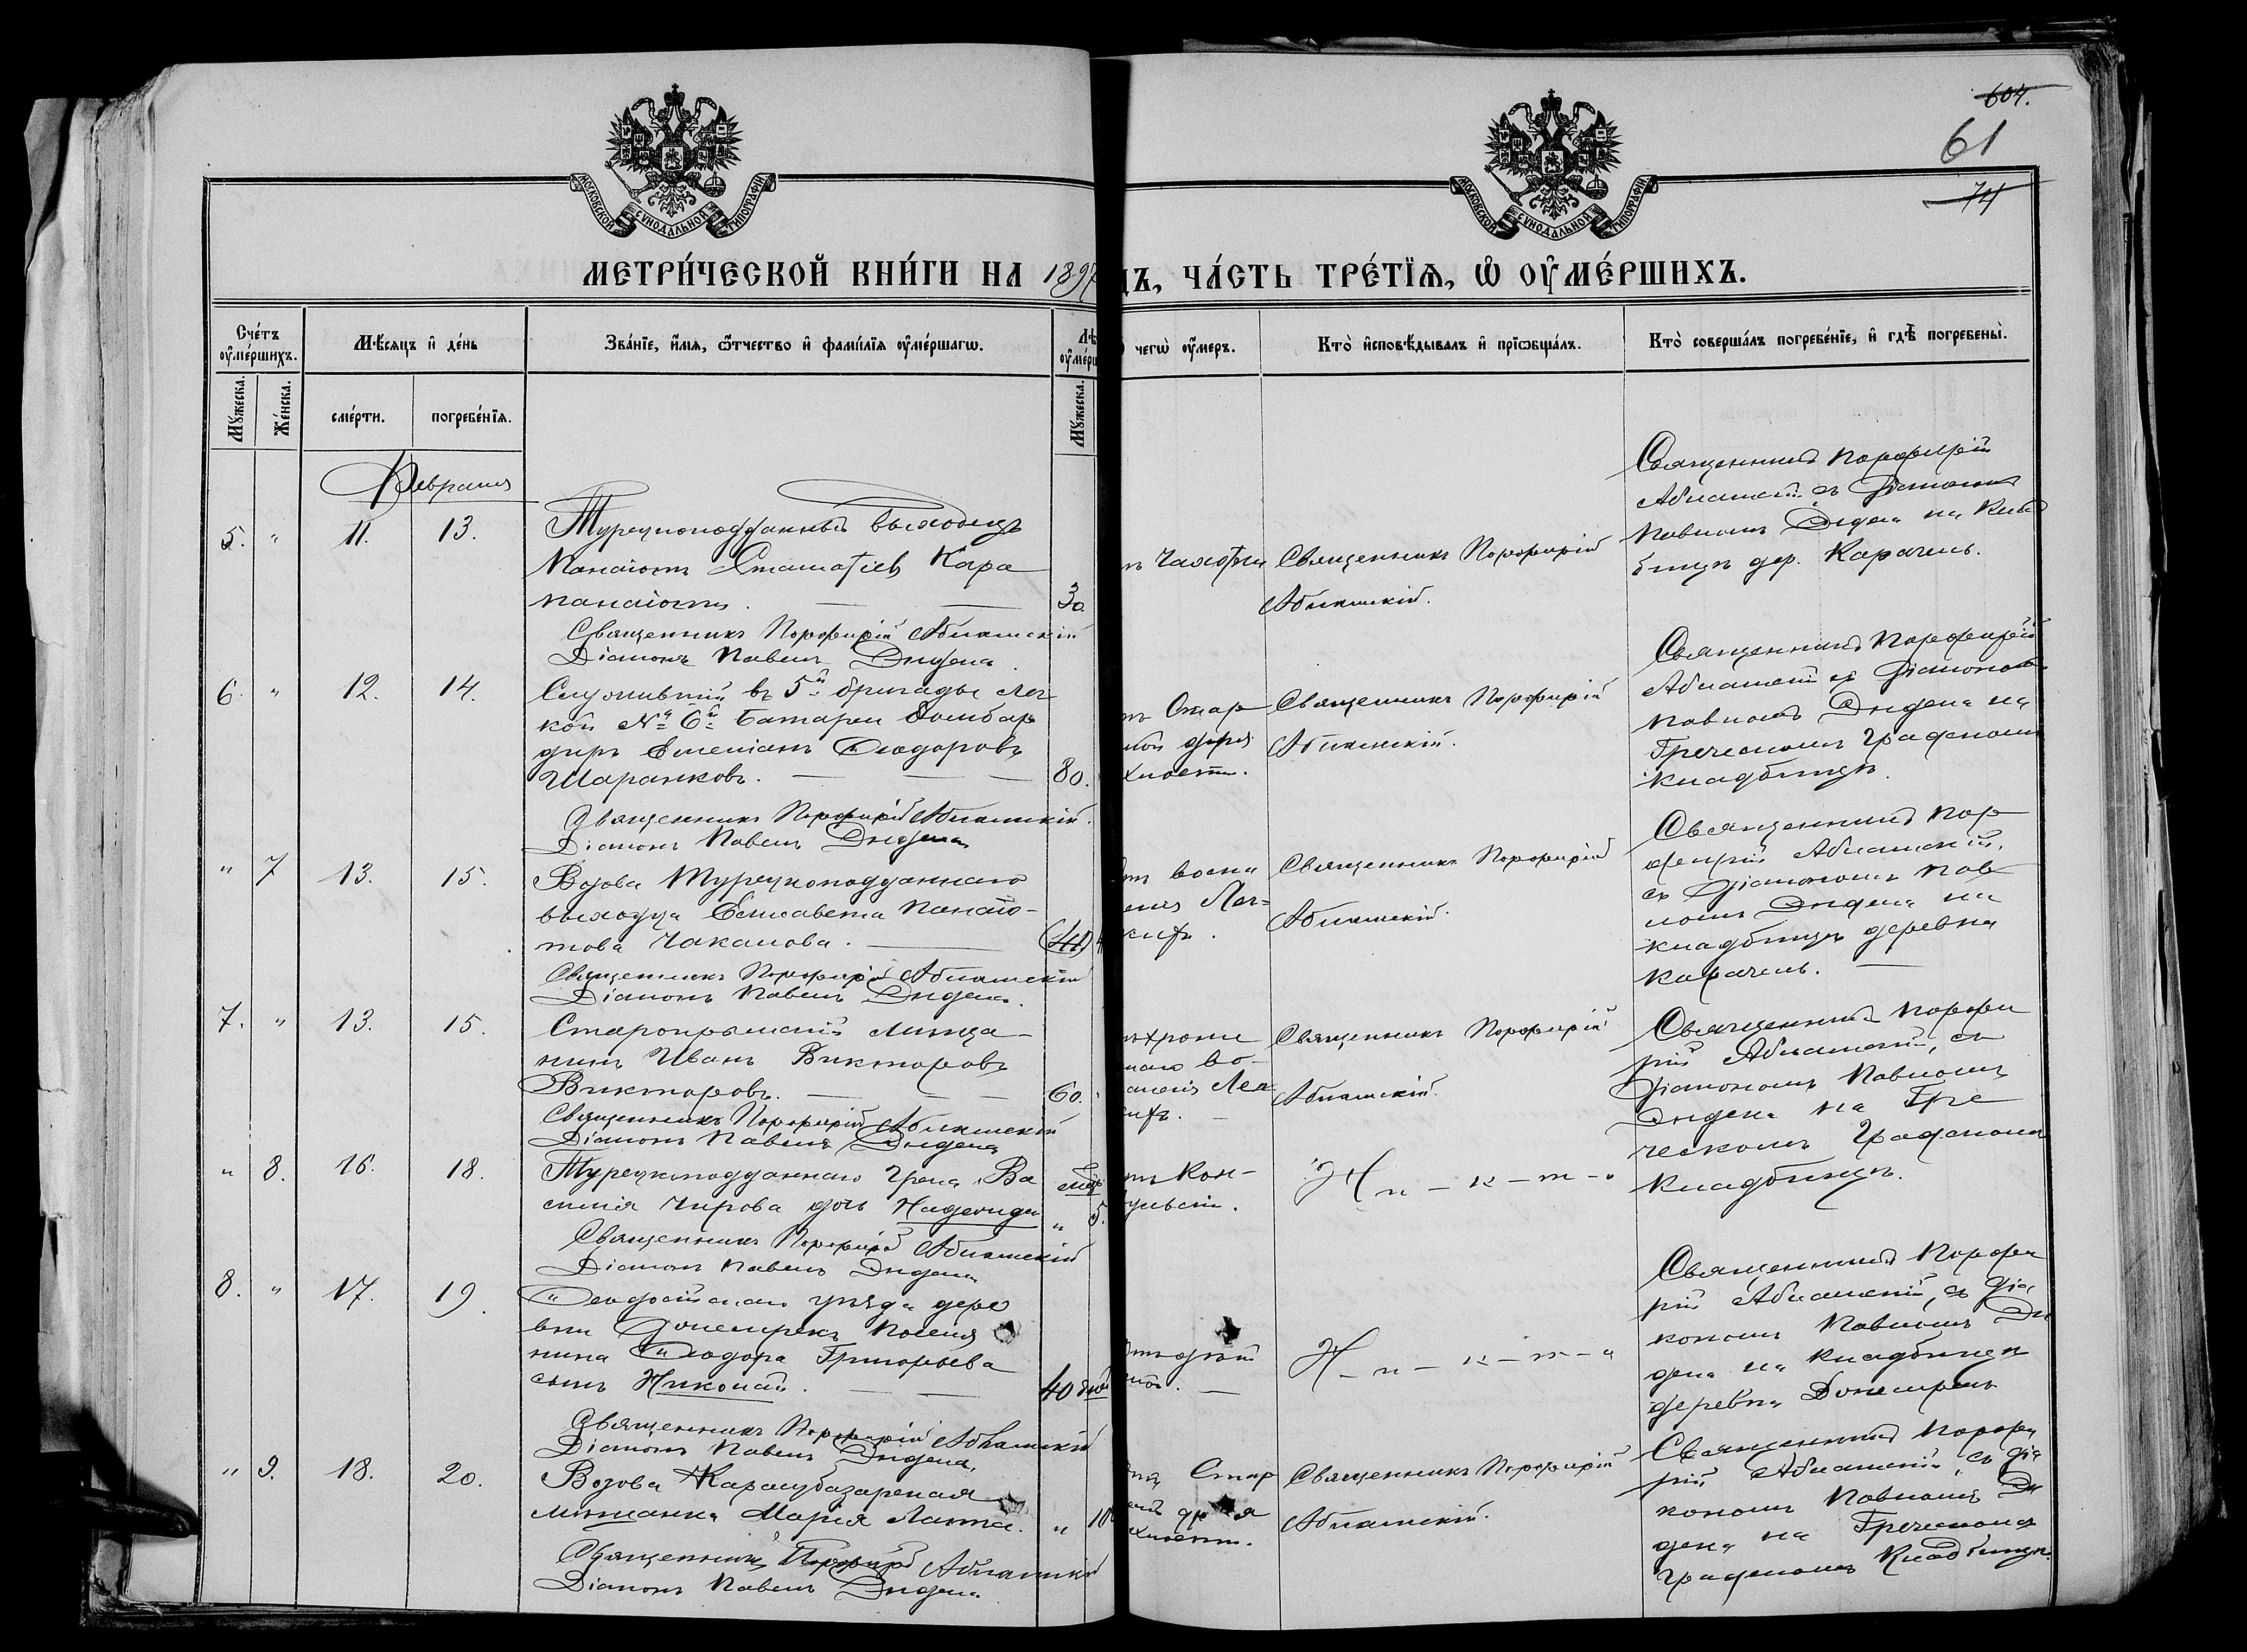 604.
61
74
МОСКОВСКОЙ СУНОДАЛЬНОЙ ТИПОГРАФІИ
МОСКОВСКОЙ СУНОДАЛЬНОЙ ТИПОГРАФІИ
МЕТРИ́ЧЕСКОЙ КНИ́ГИ НА 1897
ДЪ, ЧА́СТЬ ТРЕ́ТІѦ, Ѡ ОУМЕ́РШИХЪ.
Сче́тъ оумершихъ.
Мѣсяцъ и де́нь
Зва́нїе, и́мѧ, ѿтчество и фами́лїѧ оуме́ршагѡ.
Лѣ
оуме́рш
чегѡ̀ оумеръ.
Кто̀ исповѣ́дывалъ и прїѡбща́лъ.
Кто̀ соверша́лъ погребе́нїе, и гдѣ̀ погребены̀.
Мꙋжеска.
Же́нска.
сме́рти.
погребе́нїѧ.
Мꙋжеска.
Февраля
5. " 11. 13.
Турецкоподданный выходецъ
Панаіотъ Стаматіевъ Кара
панаіоти. 30
Священникъ Порфирій Абламскій
Діаконъ Павелъ
ъ Чахотки
Священникъ Порфирій
Абламскій.
Священникъ Порфирій
Абламскій съ Діакономъ
Павломъ на Клад
бищѣ дер. Карачель.
6. " 12. 14.
Служившій въ 5й бригады лег
кой № 6й батареи бомбар
диръ Емеліанъ Ѳеодоровъ
Шаранковъ. 80.
Священникъ Порфирій Абламскій.
Діаконъ Павелъ
тъ Стар
ской дря
хлости.
Священникъ Порфирій
Абламскій.
Священникъ Порфирій
Абламскій съ Діакономъ
Павломъ на
Греческомъ Градскомъ
кладбищѣ.
" 7 13. 15.
Вдова Турецкоподданнаго
выходца Елисавета Панаіо-
това Чакалова.
Священникъ Порфирій Абламскій
Діаконъ Павелъ
тъ воспа
ленія Лег=
кихъ.
Священникъ Порфирій
Абламскій.
Священникъ Пор
фирій Абламскій,
съ Діакономъ Пав
ломъ на
кладбищѣ деревни
Карачель.
7. " 13. 15.
Старокрымскій мѣща-
нинъ Иванъ Викторовъ
Викторовъ. 60.
Священникъ Порфирій Абламскій
Діаконъ Павелъ
ъ хрони
наго во-
паленія Лег
ихъ.
Священникъ Порфирій
Абламскій.
Священникъ Порфи
рій Абламскій, съ
Діакономъ Павломъ
на Гре
ческомъ Градскомъ
Кладбищѣ.
" 8. 16. 18.
Турецкоподданнаго грека Ва
силія Чирова дочь Надежда " 5.
Священникъ Порфирій Абламскій
Діаконъ Павелъ
тъ Кон-
вульсіи.
Н - ѣ - т - ъ
8. " 17. 19.
Ѳеодосійскаго уѣзда дере
вни поселя
нина Ѳеодора Григорьева
сынъ Николай. 40 дней
Священникъ Порфирій Абламскій
Діаконъ Павелъ
Н - ѣ - т - ъ
Священникъ Порфи
рій Абламскій, съ Діа
кономъ Павломъ
на кладбищѣ
деревни
" 9. 18. 20.
Вдова Карасубазарская
мѣщанка Марія Лапта. " 10
Священникъ Порфирій Абламскій
Діаконъ Павелъ
Стар
дря
хлости.
Священникъ Порфирій
Абламскій.
Священникъ Порфи
рій Абламскій, съ Діа
кономъ Павломъ
на Греческомъ
Градскомъ Кладбищѣ.